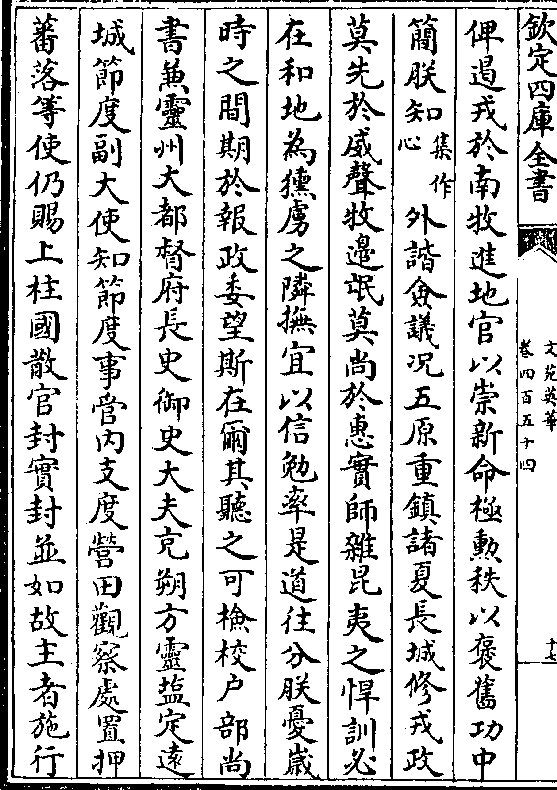 欽定四庫全書
文苑英華
卷四百五十四
十七
俾遏戎於南牧進地官以崇新命極勲秩以褒舊功中
簡朕知集作心外諧僉議况五原重鎮諸夏長城修戎政
莫先於威聲牧邉氓莫尚於惠實師雜昆夷之悍訓必
在和地為獯虜之隣撫宜以信勉率是道往分朕憂嵗
時之間期於報政委望斯在爾其聽之可檢校户部尚
書兼靈州大都督府長史御史大夫充朔方靈盐定逺
城節度副大使知節度事管内支度營田觀察處置押
蕃落等使仍賜上柱國散官封實封並如故主者施行